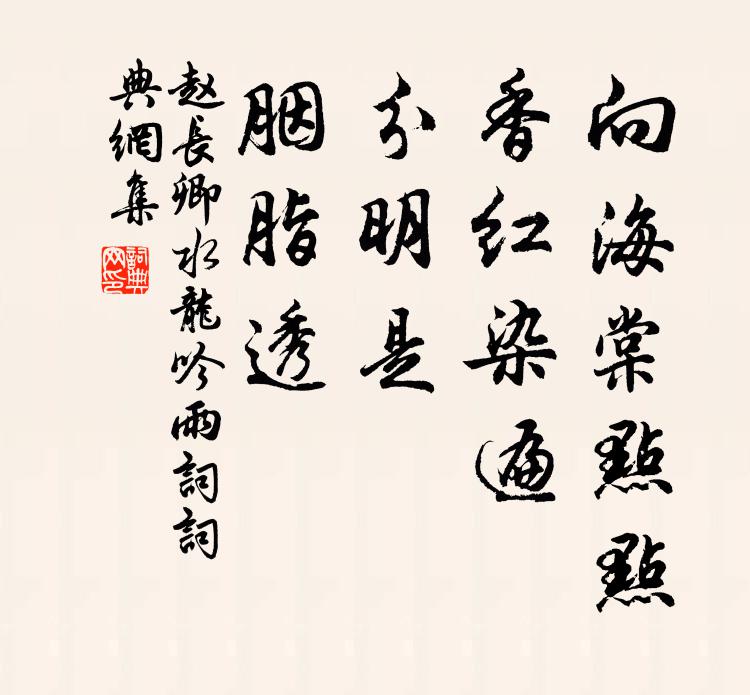 向海棠點點
香紅染遍
分明是
胭脂透
赵長卿水龍吟雨詞詞
典網集
詞典
网印